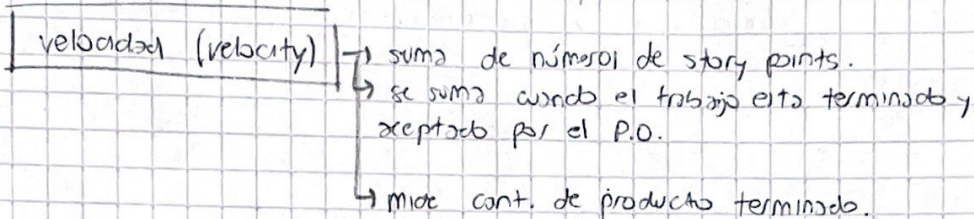 velocidad (velocity) → suma de números de story points.
↳ se suma cuando el trabajo esta terminado y
aceptado por el P.O.
↳ mide cant. de producto terminado.